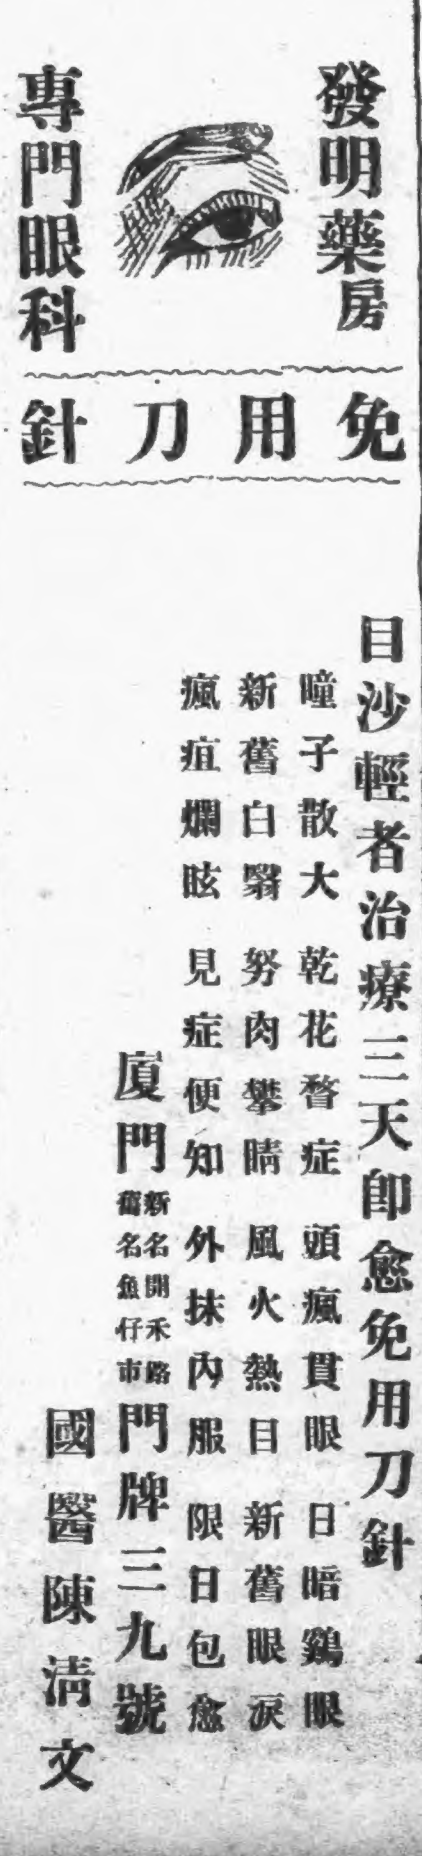 發明藥房
專門眼科
免用刀針
目沙輕者治療三天卽愈免用刀針
瞳子散大 乾花瞀症 頭瘋貫眼 日暗鷄眼
新舊白翳 努肉攀睛 風火熱目 新舊眼淚
瘋疽爛眩 見症便知 外抹內服 限日包愈
廈門新名開禾路舊名魚仔市門牌三九號
國醫陳淸文